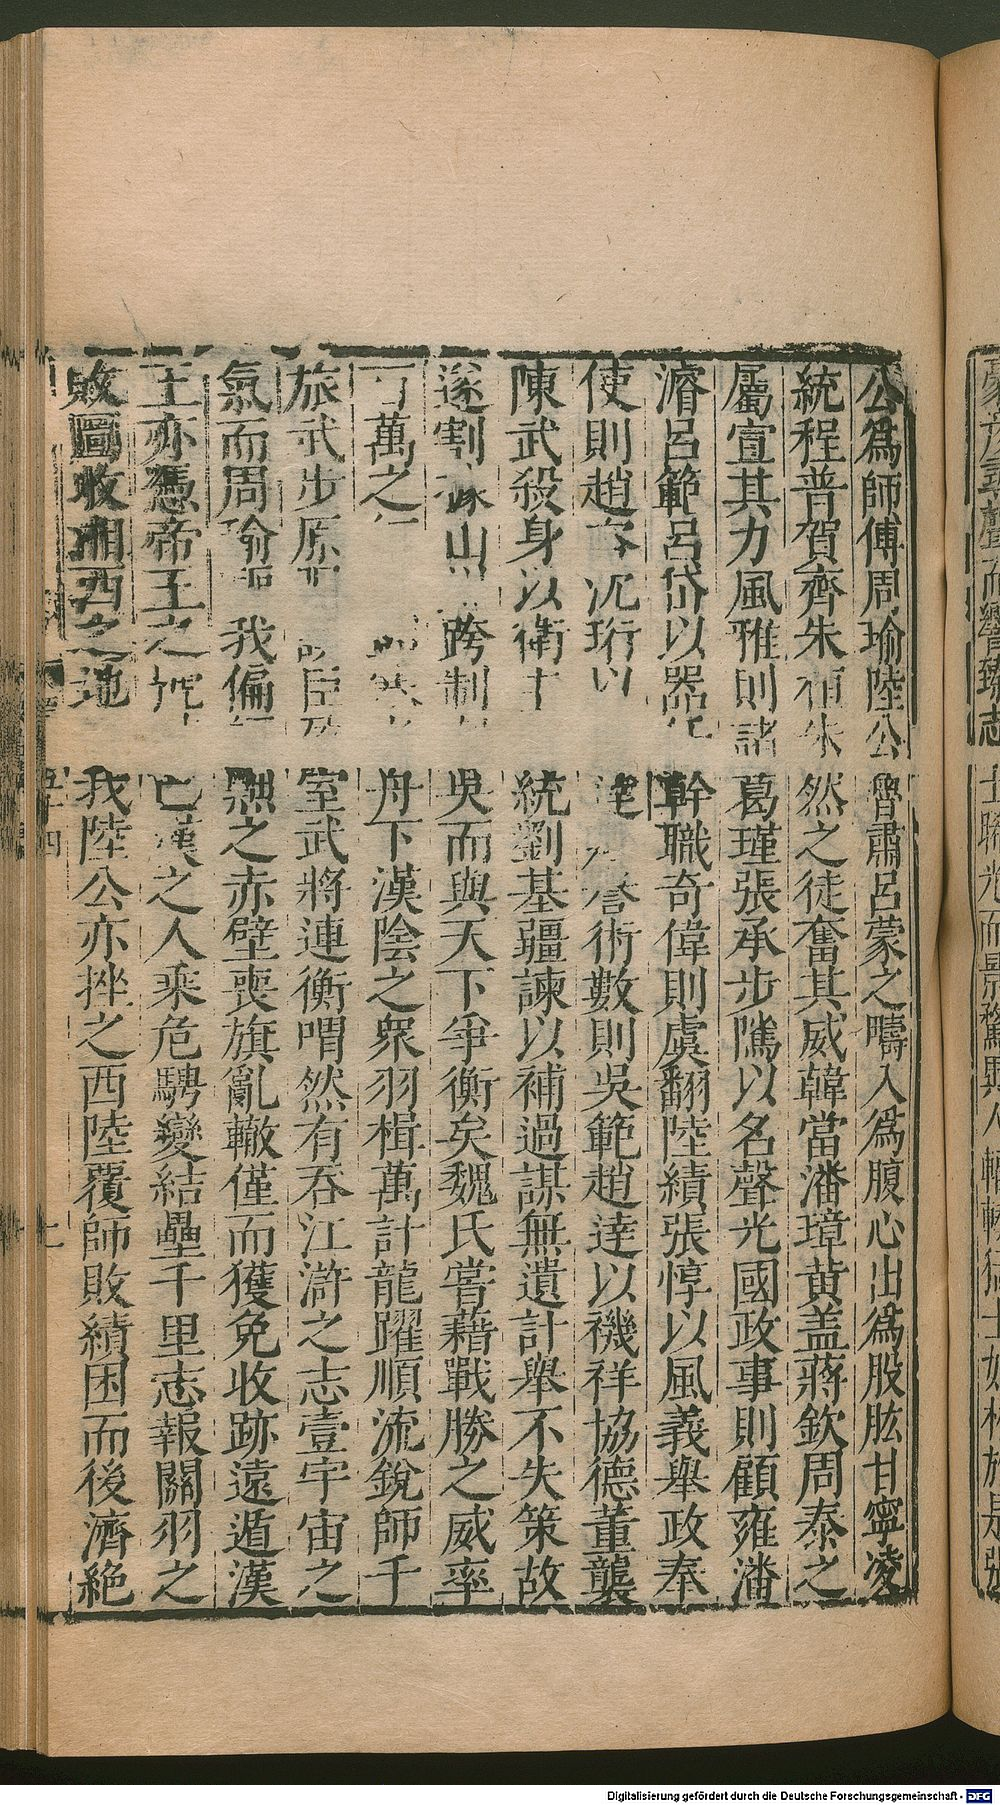 公爲師傅周瑜陸公魯肅呂蒙之疇入爲腹心出爲股肱甘寧凌
統程普賀齊朱桓朱然之徒奮其威韓當潘璋黄盖蔣欽周泰之
屬宣其力風雅則諸葛瑾張承步隲以名聲光國政事則顧雍潘
濬呂範呂岱以器幹職奇偉則虞翻陸績張惇以風義舉政奉
使則趙咨沉珩以達譽術數則吳範趙達以禨祥協德董襲
陳武殺身以衛主統劉基彊諫以補過謀無遺計舉不失策故
遂割據山跨制吳而與天下爭衡矣魏氏嘗藉戰勝之威率
萬之舟下漢陰之衆羽楫萬計龍躍順流銳師千
旅武步原臣室武將連衡喟然有吞江滸之志壹宇宙之
氣而周瑜我偏黜之赤壁喪旗亂轍僅而獲免收跡遠遁漢
王亦憑帝王之號巴漢之人乘危騁變結壘千里志報關羽之
敗圖收湘西之地我陸公亦挫之西陸覆師敗績困而後濟絕
Digitalisierung gefördert durch die Deutsche Forschungsgemeinschaft - DFG